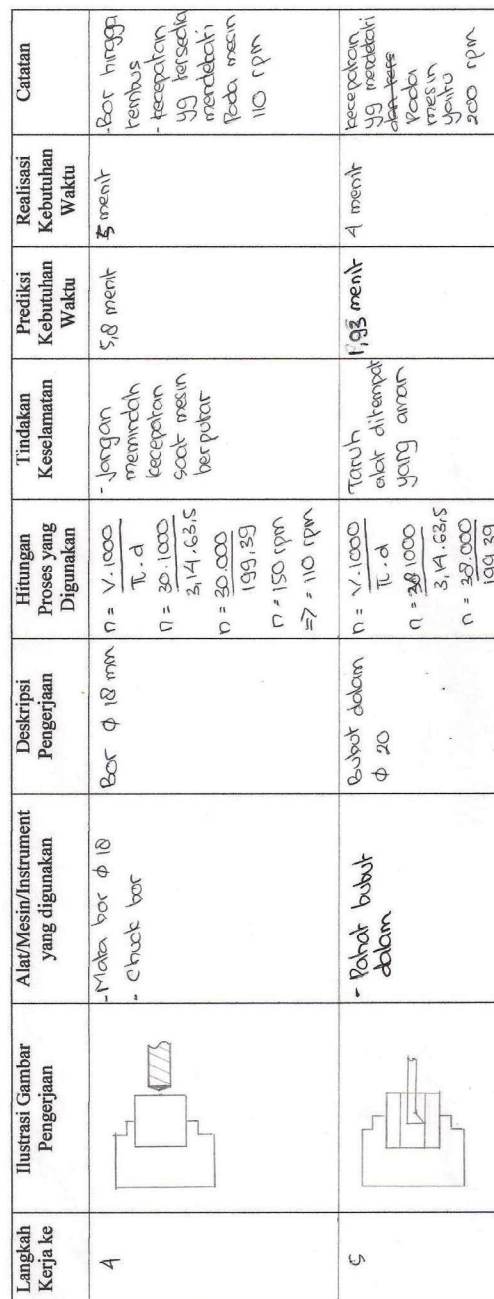 Langkah
Kerja ke
Ilustrasi Gambar
Pengerjaan
Alat/Mesin/Instrument
yang digunakan
Deskripsi
Pengerjaan
Hitungan
Proses yang
Digunakan
Tindakan
Keselamatan
Prediksi
Kebutuhan
Waktu
Realisasi
Kebutuhan
Waktu
Catatan
4
- Mata bor φ 18
- Chuck bor
Bor φ 18 mm
n = V.1000
π.d
n = 30.1000
3,14.63,5
n = 30.000
199,39
n = 150 rpm
=> 110 rpm
- Jangan
memindah
kecepatan
saat mesin
berputar
5,8 menit
5 menit
- Bor hingga
tembus
- kecepatan
yg tersedia
mendekati
Pada mesin
110 rpm
5
- Pahat bubut
dalam
Bubut dalam
φ 20
n = V.1000
π.d
n = 38.1000
3,14.63,5
n = 38.000
199,39
Taruh
alat ditempat
yang aman
1,93 menit
4 menit
kecepatan
yg mendekati
dan ters
Pada
mesin
yaitu
200 rpm